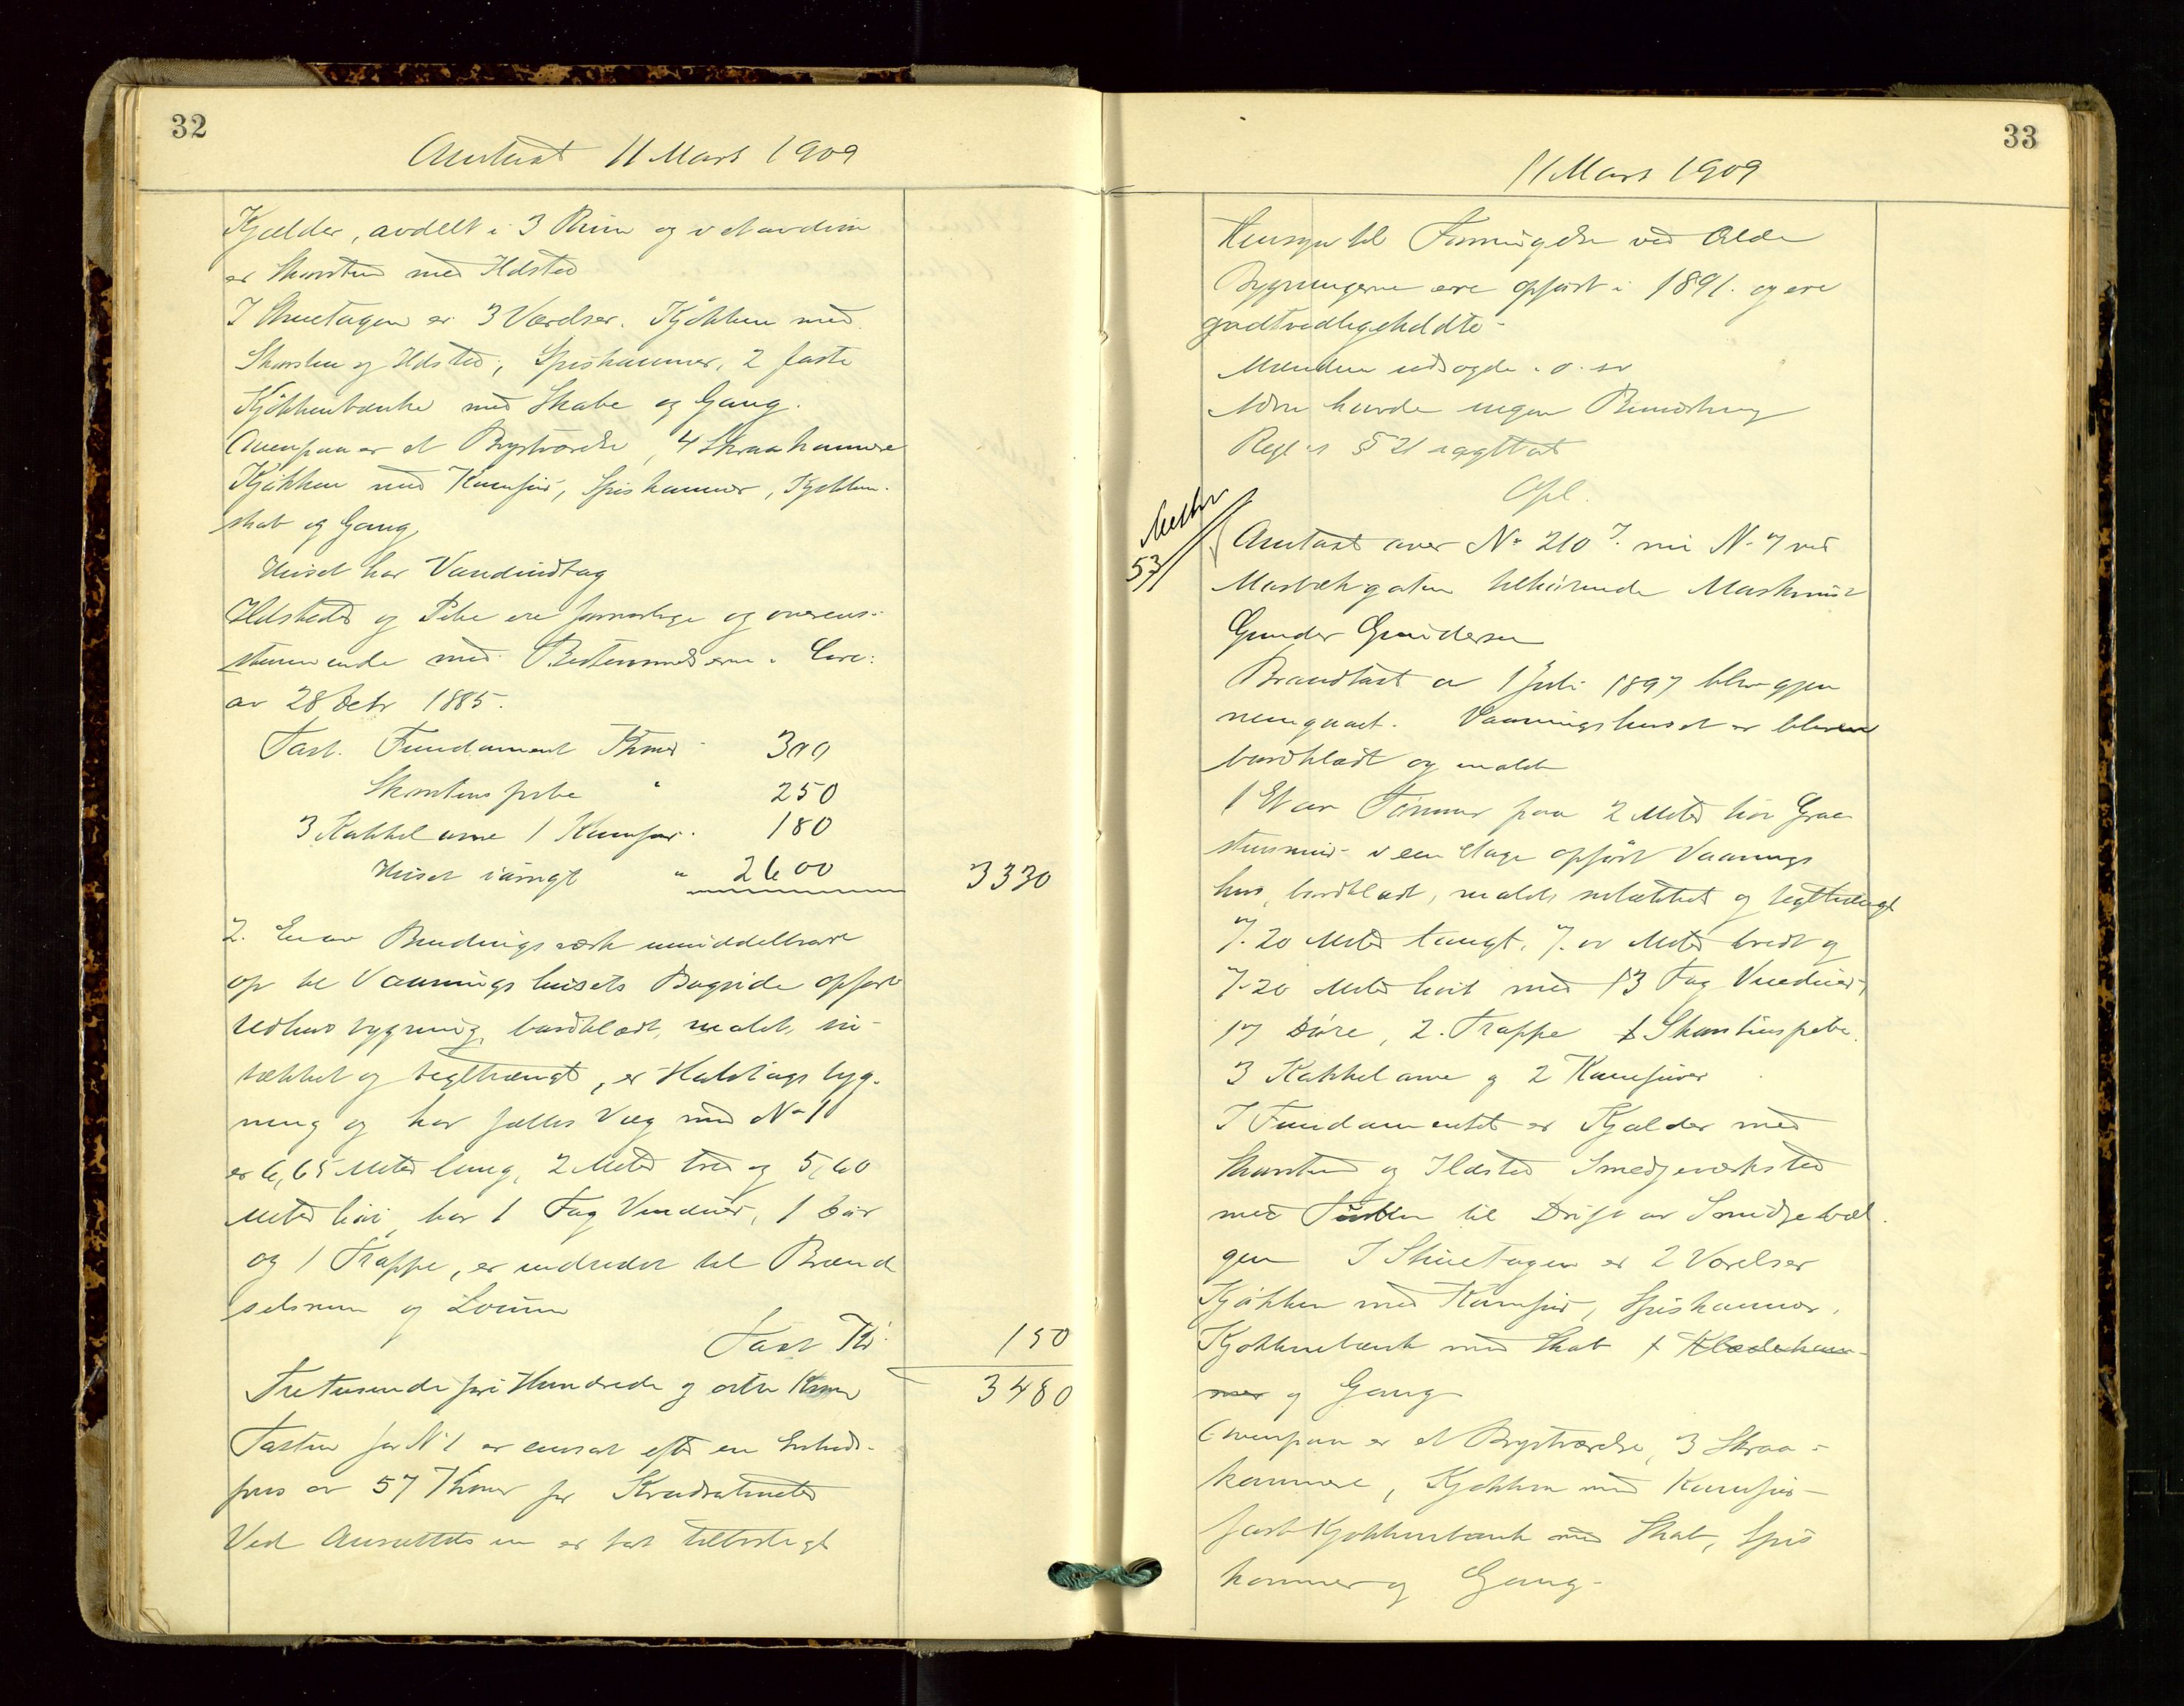 32
Omtaxt 11 Mars 1909
Kjælder, avdelt i 3 Rum og i et av disse
er Skorsten med Ildsted
I Stuetagen er 3 Værelser. Kjøkken med
Skorsten og Ildsted, Spiskammer, 2 faste
Kjøkkenbænke med Skabe og Gang.
Ovenpaa er et Brystværelse, 4 Skraakammere
Kjøkken med Komfur, Spiskammer, Kjøkken-
skab og Gang
Huset har Vandindtag
Ildstedet og Pibe ere forsvarlige og overens-
stemmende med Bestemmelserne i Circ:
av 28 Octr 1885.
Taxt. Fundament Kroner 300
Skorstenspibe " 250
3 Kakkelovne 1 Komfur 180
Huset iøvrigt " 2600 3330
2. En av Bindingsværk umiddelbart
op til Vaaningshusets Bagside opført
Udhusbygning, bordklædt, malt, su-
tækket og tegltængt, er Halvtagsbyg-
ning og har fælles Væg med No 1
er 6,65 Meter lang, 2 Meter bred og 5,60
Meter høi, har 1 Fag Vinduer, 1 Dør
og 1 Trappe, er indredet til Brænd
selsrum og Locum
Taxt Kr. 150
Tretusende fire Hundrede og otti Kroner 3480
Taxten for No 1 er ansat efter en Enheds-
pris av 57 Kroner pr Kvadratmeter
Ved Ansættelsen er tat tilbørligt
33
11 Mars 1909
Hensyn til Forringelse ved Ælde
Bygningerne ere opført i 1891. og ere
godt vedligeholdte-
Mændene udsagde o. sv
Ingen havde nogen Bemerkning
Regl.s § 21 iagttat
Opl.
53
Omtaxt over No 210 7. nu No 7 ved
tilhørende Maskinist
Gunder Gundersen
Brandtaxt av 1 Juli 1897 blev gjen
nemgaaet. Vaaningshuset er bleven
bordklædt og malet
1 Et av Tømmer paa 2 Meter høi Graa
stensmur i een Etage opført Vaanings
hus, bordklædt, malet, sutækket og tegltængt
7.20 Meter langt, 7. Meter bredt og
7.20 Meter høit med 13 Fag Vinduer,
17 Døre, 2. Trappe 1 Skorstenspibe.
3 Kakkelovne og 2 Komfurer
I Fundamentet er Kjælder med
Skorsten og Ildsted Smedjeværksted
med til Drift av Smidjebæl
gen I Stuetagen er 2 Værelser
Kjøkken med Komfur, Spiskammer,
Kjøkkenbænk med Skab Klædekam-
mer og Gang
Ovenpaa er et Brystværelse, 3 Skraa-
kammere, Kjøkken med Komfur-
fast Kjøkkenbænk med Skab, Spis
kammer og Gang-